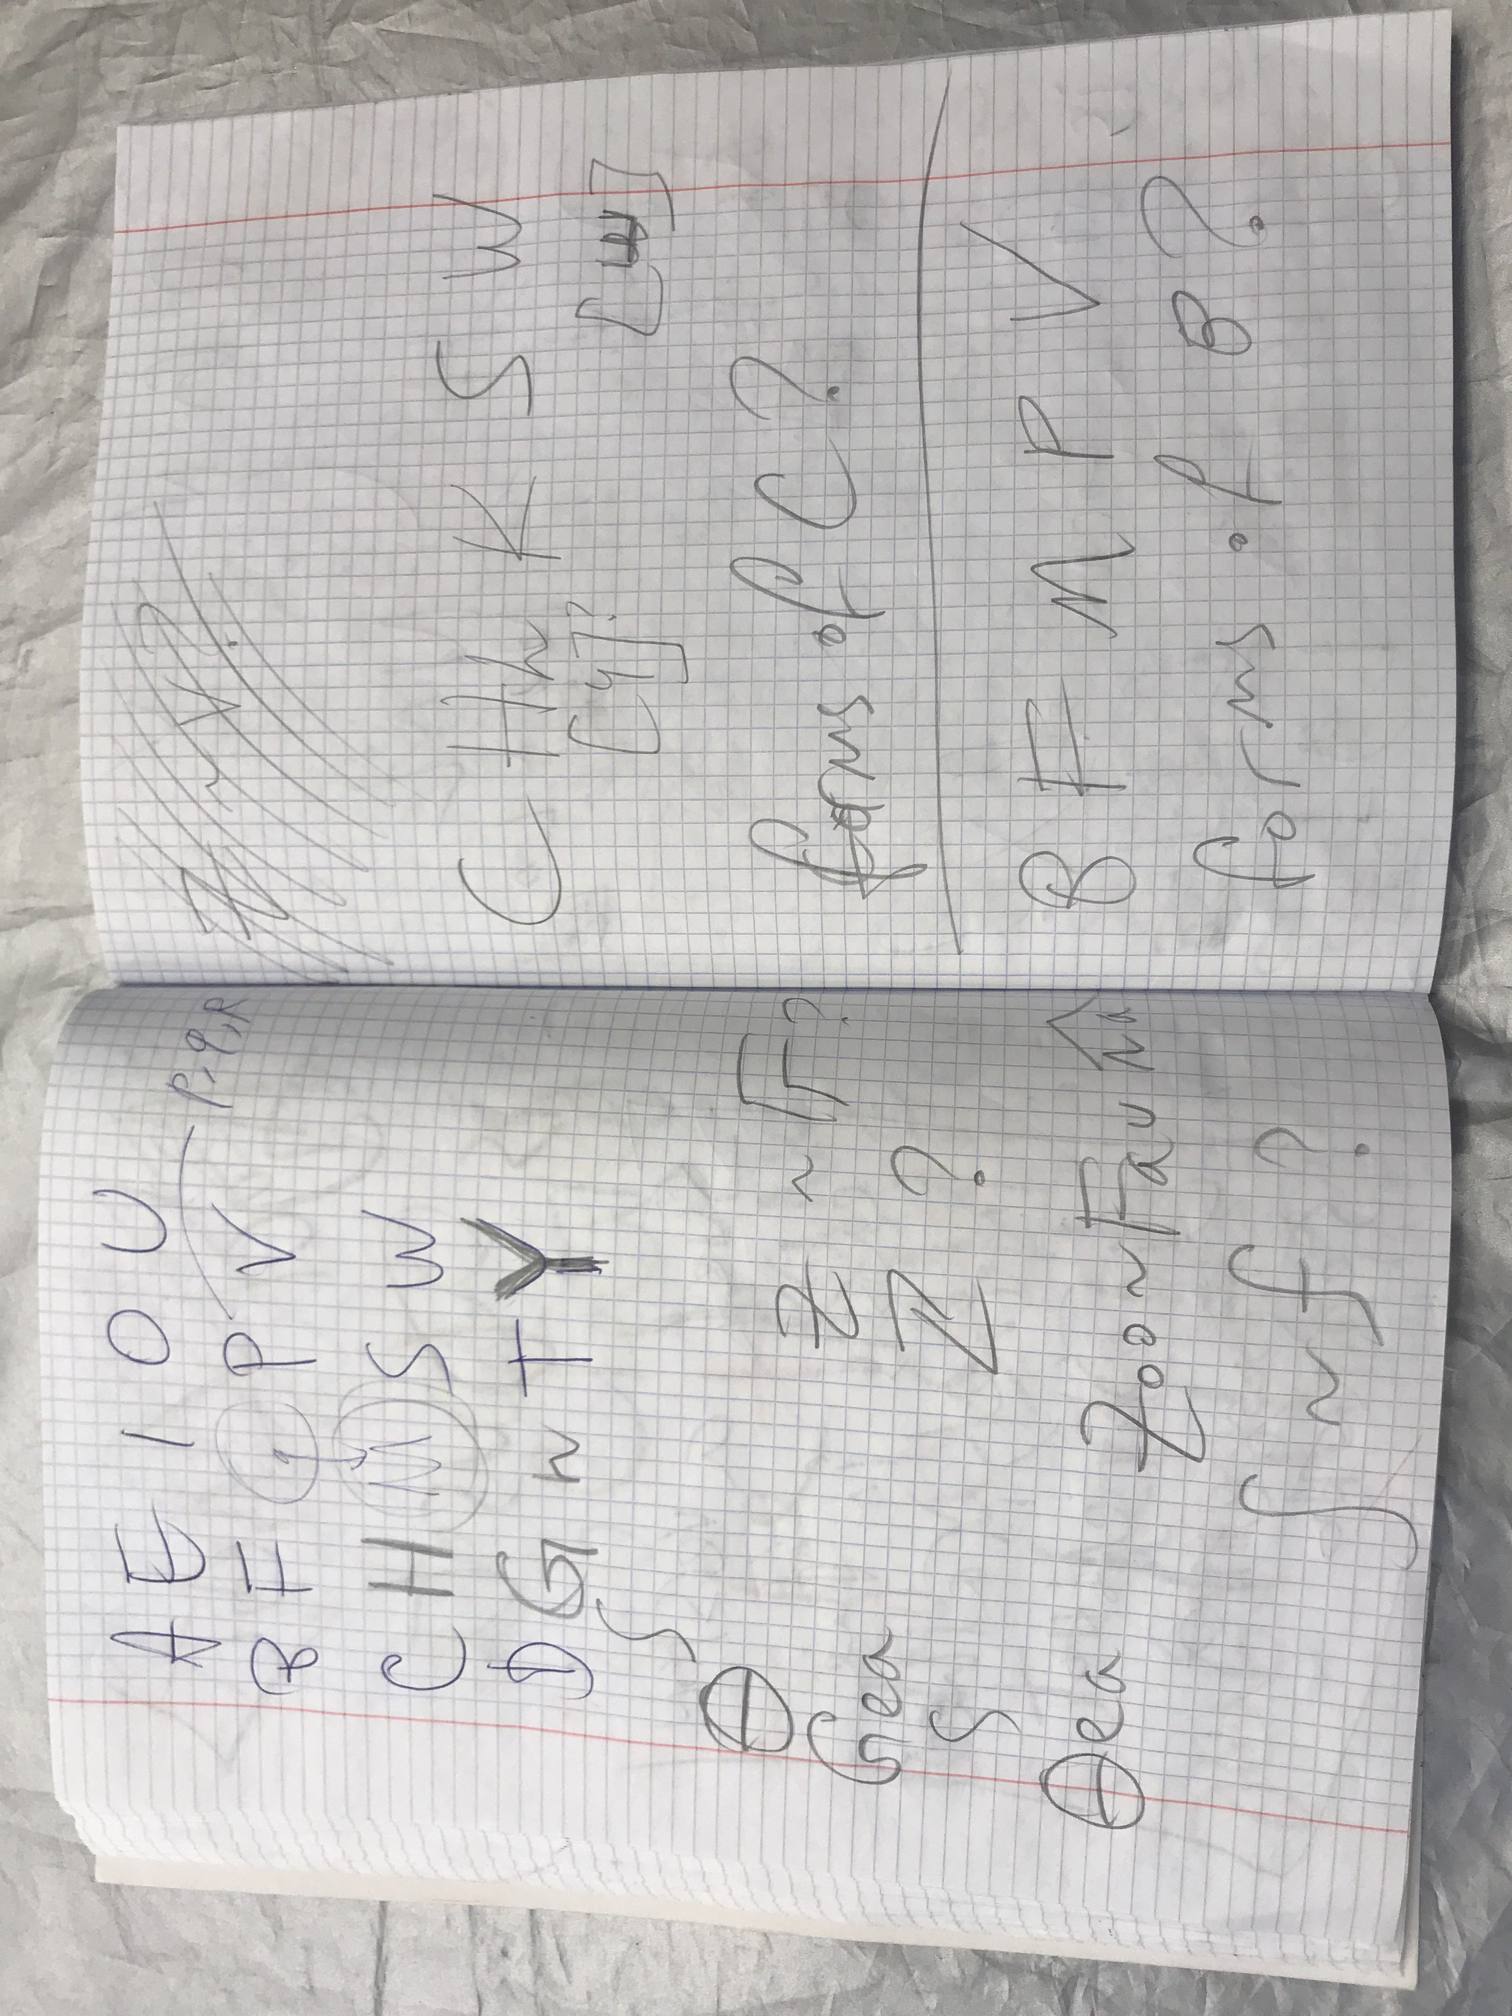 A E I O U
B F P V P, q, R
C H M S W
D G N T Y
Θ
Gea
S
Θea
Z ~ F?
Z ?
Zoo ~ Fauna
∫ ~ f ?
Z ~ V.?
C Hh K S W
[ч]? [ш]
forms of C?
B F M P V
forms of B?